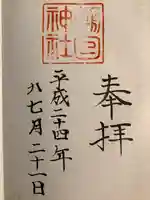 奉拝
神社
平成二十四年
八七月二十一日